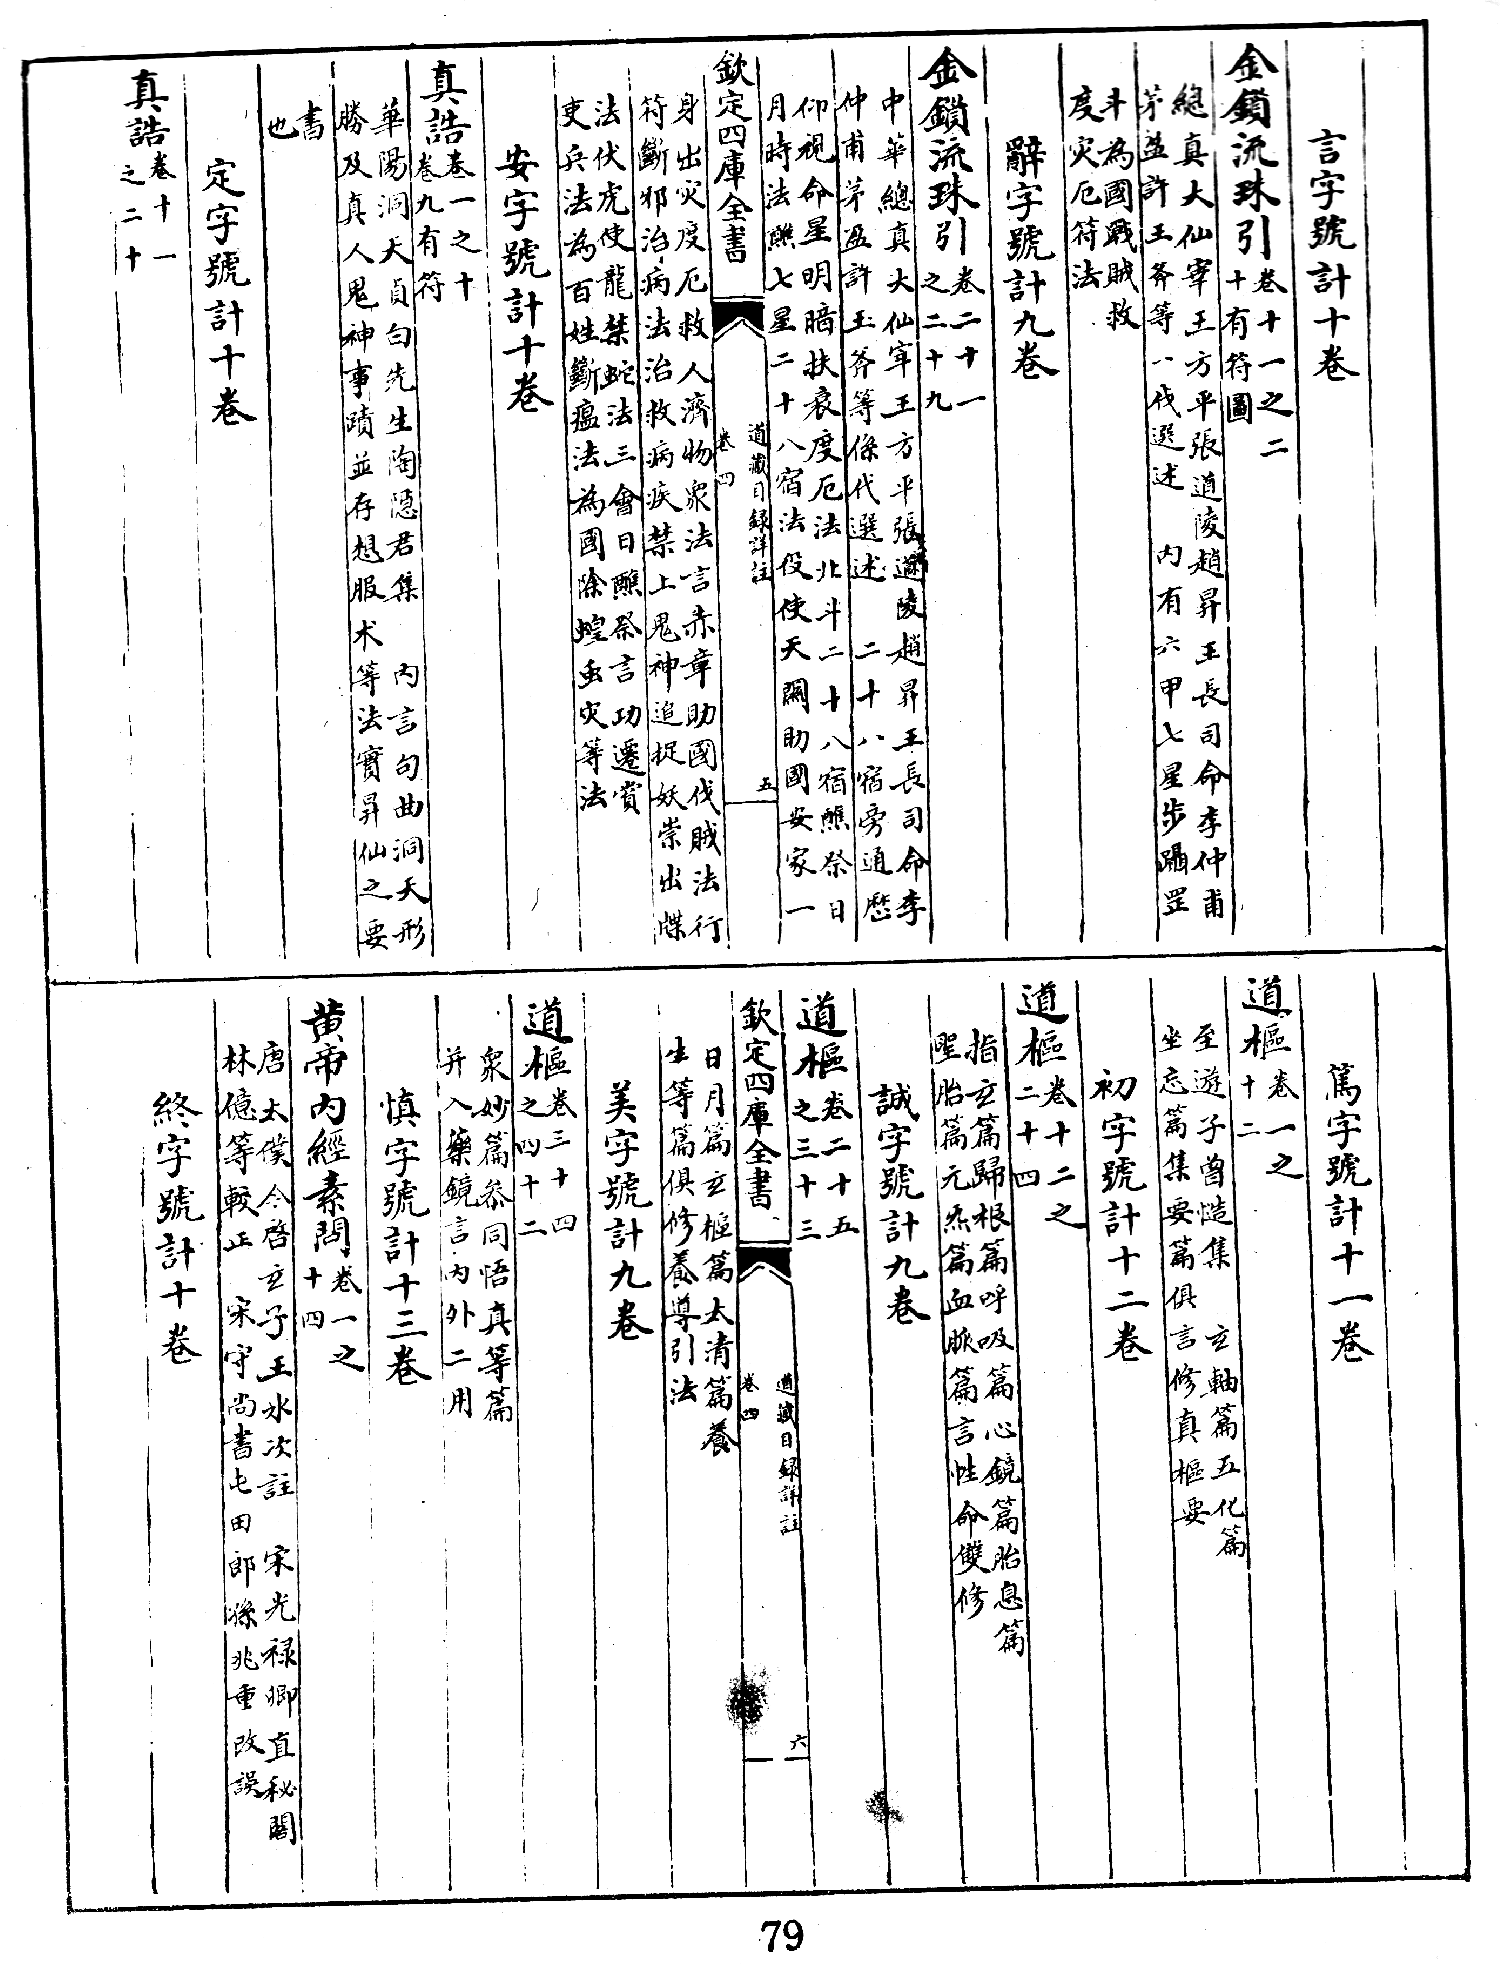 言字號計十卷
金鎖流珠引卷十一之二
十有符圖
總真大仙宰王方平張道陵趙昇王長司命李仲甫
茅盈許玉斧等一代選述　內有六甲七星步躡罡
斗為國戰賊救
度灾厄符法
辭字號計九卷
金鎖流珠引卷二十一
之二十九
中華總真大仙宰王方平張道陵趙昇王長司命李
仲甫茅盈許玉斧等係代選述　二十八宿旁通歷
仰視命星明暗扶衰度厄法北斗二十八宿醮祭日
月時法醮七星二十八宿法役使天關助國安家一
欽定四庫全書
道藏目錄詳註
卷四
五
身出灾度厄救人濟物眾法言赤章助國伐賊法行
符斷邪治病法治救病疾禁上鬼神追捉妖祟出牒
法伏虎使龍禁蛇法三會日醮祭言功遷賞
吏兵法為百姓斷瘟法為國除蝗虫灾等法
安字號計十卷
真誥卷一之十
卷九有符
華陽洞天貞白先生陶隱君集　內言句曲洞天形
勝及真人鬼神事蹟並存想服术等法實昇仙之要
書
也
定字號計十卷
真誥卷十一
之二十
篤字號計十一卷
道樞卷一之
十二
至遊子曾慥集　玄軸篇五化篇
坐忘篇集要篇俱言修真樞要
初字號計十二卷
道樞卷十二之
二十四
指玄篇歸根篇呼吸篇心鏡篇胎息篇
聖胎篇元炁篇血脈篇言性命雙修
誠字號計九卷
道樞卷二十五
之三十三
欽定四庫全書
道藏目錄詳註
卷四
六
日月篇玄樞篇太清篇養
生等篇俱修養導引法
美字號計九卷
道樞卷三十四
之四十二
眾妙篇參同悟真等篇
并入藥鏡言內外二用
慎字號計十三卷
黃帝內經素問卷一之
十四
唐太僕令啓玄子王水次註　宋光祿卿直秘閣
林億等較正　宋守尚書屯田郎孫兆重改誤
終字號計十卷
79